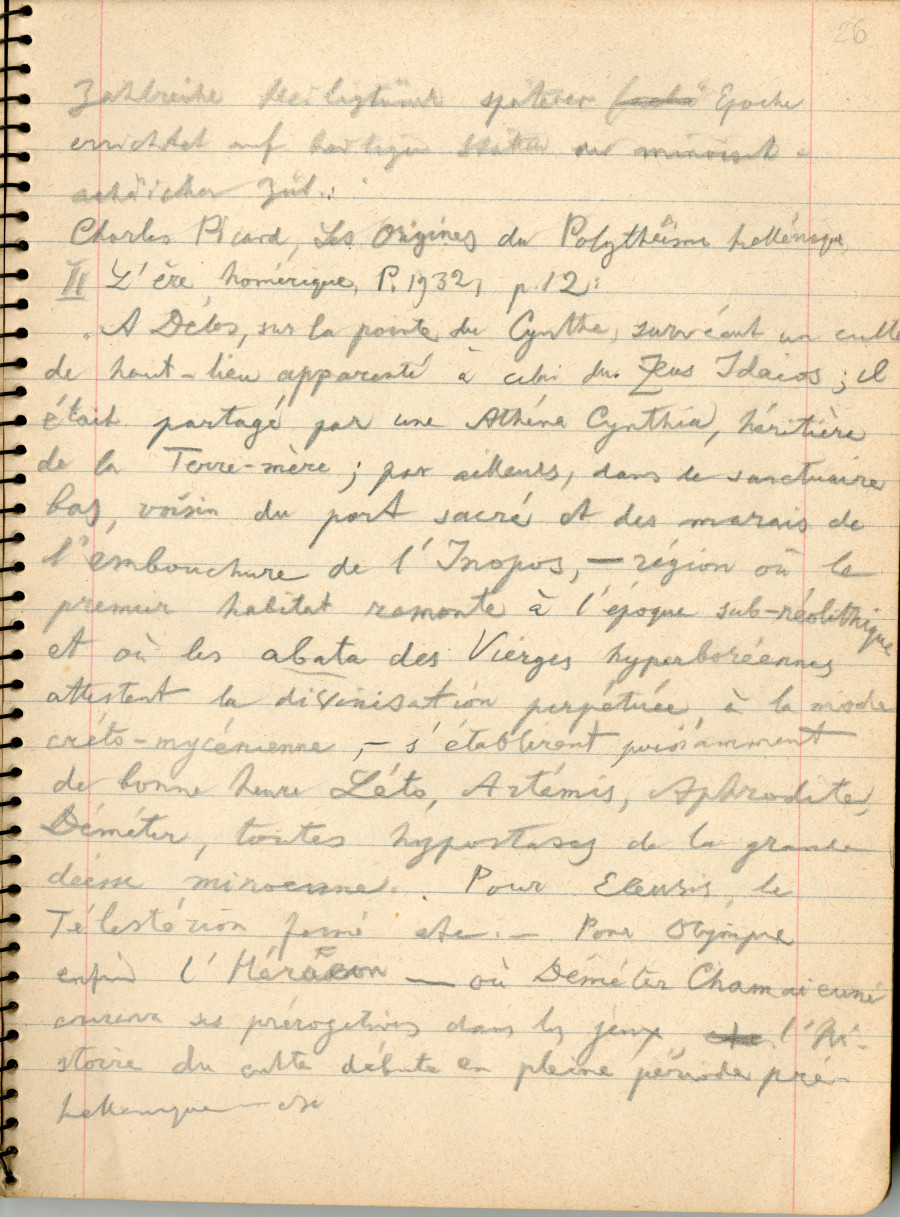 26
Zahlreiche Heiligtümer späterer Epoche
errichtet auf heiligen Stätten der minoisch-
achäischen Zeit:
Charles Picard, Les Origines du Polythéisme hellénique
II L'ère homérique, P. 1932, p. 12:
„A Délos, sur la pointe du Cynthe, survécut un culte
de haut-lieu apparenté à celui du Zeus Idaios; il
était partagé par une Athéna Cynthia, héritière
de la Terre-mère; par ailleurs, dans le sanctuaire
bas, voisin du port sacré et des marais de
l'embouchure de l'Inopos, – région où le
premier habitat remonte à l'époque sub-néolithique
et où les abata des Vierges hyperboréennes
attestent la divinisation perpétuée à la mode
créto-mycénienne, – s'établirent puissamment
de bonne heure Léto, Artémis, Aphrodite,
Déméter, toutes hypostases de la grande
déesse minoenne. Pour Eleusis, le
Télestérion fermé etc. – Pour Olympie
enfin l'Héraeon — où Déméter Chamaiéuné
conserva ses prérogatives dans les jeux l'hi-
stoire du culte débute en pleine période pré-
hellénique —